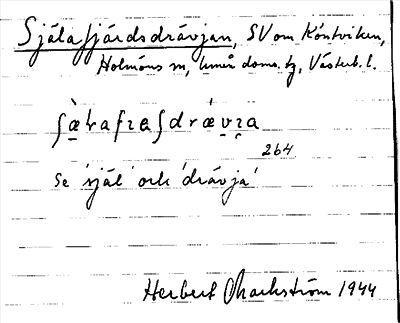 Själafjärdsdrävjan, SV om Köntviken,
Holmöns sn, Umeå doms. tg, Västerb. l.
ʃæ̀ɽafɪaʃdrǽvɪa
264
Se 'själ' och 'drävja'
Herbert Markström 1944